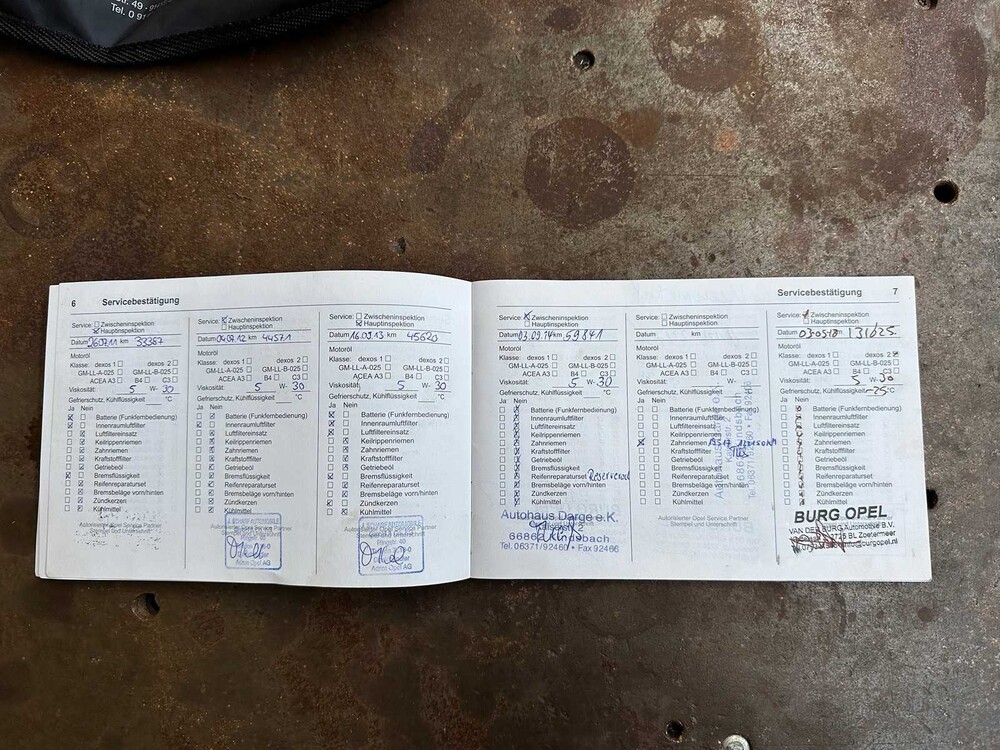 Tel. 0 9
6 Servicebestätigung
Service: Zwischeninspektion
Hauptinspektion
Datum 26.07.11 km 33367
Motoröl
Klasse: dexos 1 dexos 2
GM-LL-A-025 GM-LL-B-025
ACEA A3 B4 C3
Viskosität: 5 W- 30
Gefrierschutz, Kühlflüssigkeit °C
Ja Nein
Batterie (Funkfernbedienung)
Innenraumluftfilter
Luftfiltereinsatz
Keilrippenriemen
Zahnriemen
Kraftstofffilter
Getriebeöl
Bremsflüssigkeit
Reifenreparaturset
Bremsbeläge vorn/hinten
Zündkerzen
Kühlmittel
Autorisierter Opel Service Partner
Stempel und Unterschrift
Service: Zwischeninspektion
Hauptinspektion
Datum 04.07.12 km 44571
Motoröl
Klasse: dexos 1 dexos 2
GM-LL-A-025 GM-LL-B-025
ACEA A3 B4 C3
Viskosität: 5 W- 30
Gefrierschutz, Kühlflüssigkeit °C
Ja Nein
Batterie (Funkfernbedienung)
Innenraumluftfilter
Luftfiltereinsatz
Keilrippenriemen
Zahnriemen
Kraftstofffilter
Getriebeöl
Bremsflüssigkeit
Reifenreparaturset
Bremsbeläge vorn/hinten
Zündkerzen
Kühlmittel
Autorisierter Opel Service Partner
Adam Opel AG
Service: Zwischeninspektion
Hauptinspektion
Datum 16.09.13 km 45620
Motoröl
Klasse: dexos 1 dexos 2
GM-LL-A-025 GM-LL-B-025
ACEA A3 B4 C3
Viskosität: 5 W- 30
Gefrierschutz, Kühlflüssigkeit °C
Ja Nein
Batterie (Funkfernbedienung)
Innenraumluftfilter
Luftfiltereinsatz
Keilrippenriemen
Zahnriemen
Kraftstofffilter
Getriebeöl
Bremsflüssigkeit
Reifenreparaturset
Bremsbeläge vorn/hinten
Zündkerzen
Kühlmittel
Autorisierter Opel Service Partner
Adam Opel AG
Servicebestätigung 7
Service: Zwischeninspektion
Hauptinspektion
Datum 03.09.14 km 59841
Motoröl
Klasse: dexos 1 dexos 2
GM-LL-A-025 GM-LL-B-025
ACEA A3 B4 C3
Viskosität: 5 W- 30
Gefrierschutz, Kühlflüssigkeit °C
Ja Nein
Batterie (Funkfernbedienung)
Innenraumluftfilter
Luftfiltereinsatz
Keilrippenriemen
Zahnriemen
Kraftstofffilter
Getriebeöl
Bremsflüssigkeit
Reifenreparaturset
Bremsbeläge vorn/hinten
Zündkerzen
Kühlmittel
Autohaus Darge e.K.
66862 Kindsbach
Tel. 06371/92460 • Fax 92466
Service: Zwischeninspektion
Hauptinspektion
Datum km
Motoröl
Klasse: dexos 1 dexos 2
GM-LL-A-025 GM-LL-B-025
ACEA A3 B4 C3
Viskosität: W-
Gefrierschutz, Kühlflüssigkeit °C
Ja Nein
Batterie (Funkfernbedienung)
Innenraumluftfilter
Luftfiltereinsatz
Keilrippenriemen
Zahnriemen
Kraftstofffilter
Getriebeöl
Bremsflüssigkeit
Reifenreparaturset
Bremsbeläge vorn/hinten
Zündkerzen
Kühlmittel
Autorisierter Opel Service Partner
Stempel und Unterschrift
Service: Zwischeninspektion
Hauptinspektion
Datum 030518 km 131625
Motoröl
Klasse: dexos 1 dexos 2
GM-LL-A-025 GM-LL-B-025
ACEA A3 B4 C3
Viskosität: 5 W- 30
Gefrierschutz, Kühlflüssigkeit -25 °C
Ja Nein
Batterie (Funkfernbedienung)
Innenraumluftfilter
Luftfiltereinsatz
Keilrippenriemen
Zahnriemen
Kraftstofffilter
Getriebeöl
Bremsflüssigkeit
Reifenreparaturset
Bremsbeläge vorn/hinten
Zündkerzen
Kühlmittel
BURG OPEL
VAN DER BURG Automotive B.V.
2725 BL Zoetermeer